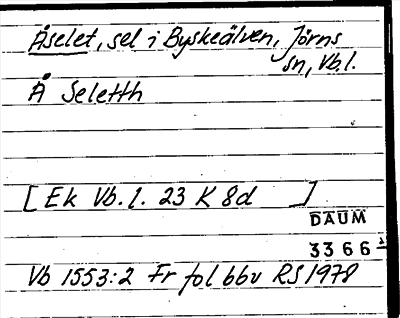 Åselet, sel i Byskeälven, Jörns
sn, Vb.l.
Å Seletth
[Ek Vb. l. 23 K 8d ]
DAUM
3366
Vb 1553:2 Fr fol bbv RS 1978